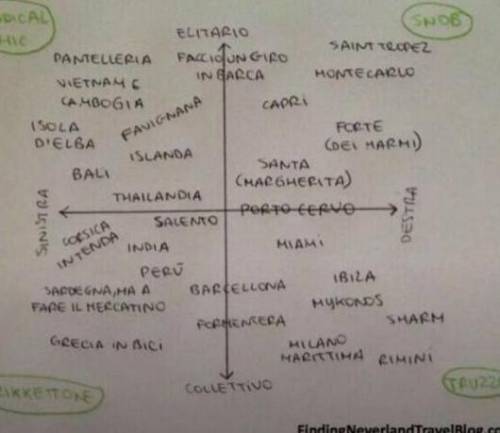 ELITARIO
SNOB
PANTELLERIA
FACCIO UN GIRO
IN BARCA
SAINT TROPEZ
MONTECARLO
VIETNAM E
CAMBOGIA
FAVIGNANA
CAPRI
ISOLA
D'ELBA
FORTE
(DEI MARMI)
ISLANDA
BALI
SANTA
(MARGHERITA)
THAILANDIA
SINISTRA
SALENTO
PORTO CERVO
DESTRA
CORSICA
INTENDA
INDIA
MIAMI
PERÙ
SARDEGNA, MA A
FARE IL MERCATINO
BARCELLONA
IBIZA
MYKONOS
FORMENTERA
SHARM
GRECIA IN BICI
MILANO
MARITTIMA
RIMINI
COLLETTIVO
FindingNeverlandTravelBlog.co